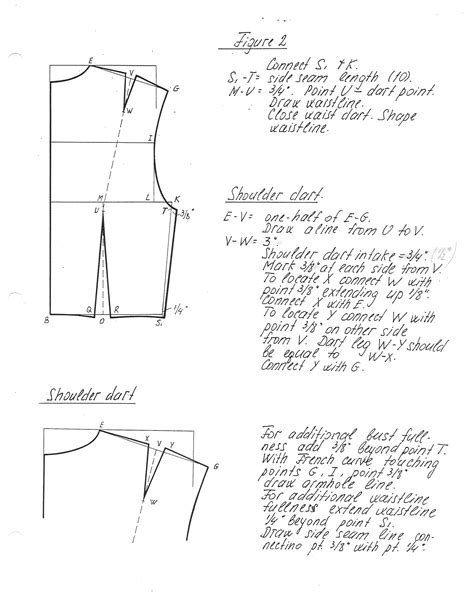 Figure 2
Connect S, & K.
S,-T= side seam length (10).
M-U = 3/4". Point U = dart point.
Draw waistline.
Close waist dart. Shape
waistline.
E
V
G
W
I
M
L
K
U
T
3/8"
1/4"
B
Q
O
R
S,
Shoulder dart.
E-V= one-half of E-G.
Draw a line from U to V.
V-W= 3".
Shoulder dart intake = 3/4". (1/2")
Mark 3/8" at each side from V.
To locate X connect W with
point 3/8" extending up 1/8".
Connect X with E.
To locate Y connect W with
point 3/8" on other side
from V. Dart leg W-Y should
be equal to W-X.
Connect Y with G.
Shoulder dart
E
X
V
Y
G
W
For additional bust full-
ness add 3/8" beyond point T.
With French curve touching
points G, I, point 3/8"
draw armhole line.
For additional waistline
fullness extend waistline
1/4" beyond point S,.
Draw side seam line con-
necting pt. 3/8" with pt. 1/4".